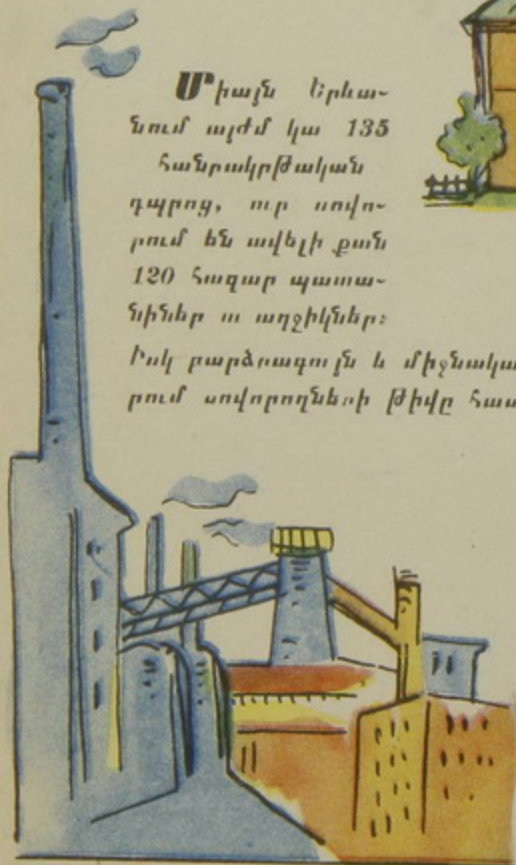 Միայն Երևա-
նում այժմ կա 135
հանրակրթական
դպրոց, ուր սովո-
րում են ավելի քան
120 հազար պատա-
նիներ ու աղջիկներ։
Իսկ բարձրագույն և միջնակա
րում սովորողների թիվը հաս